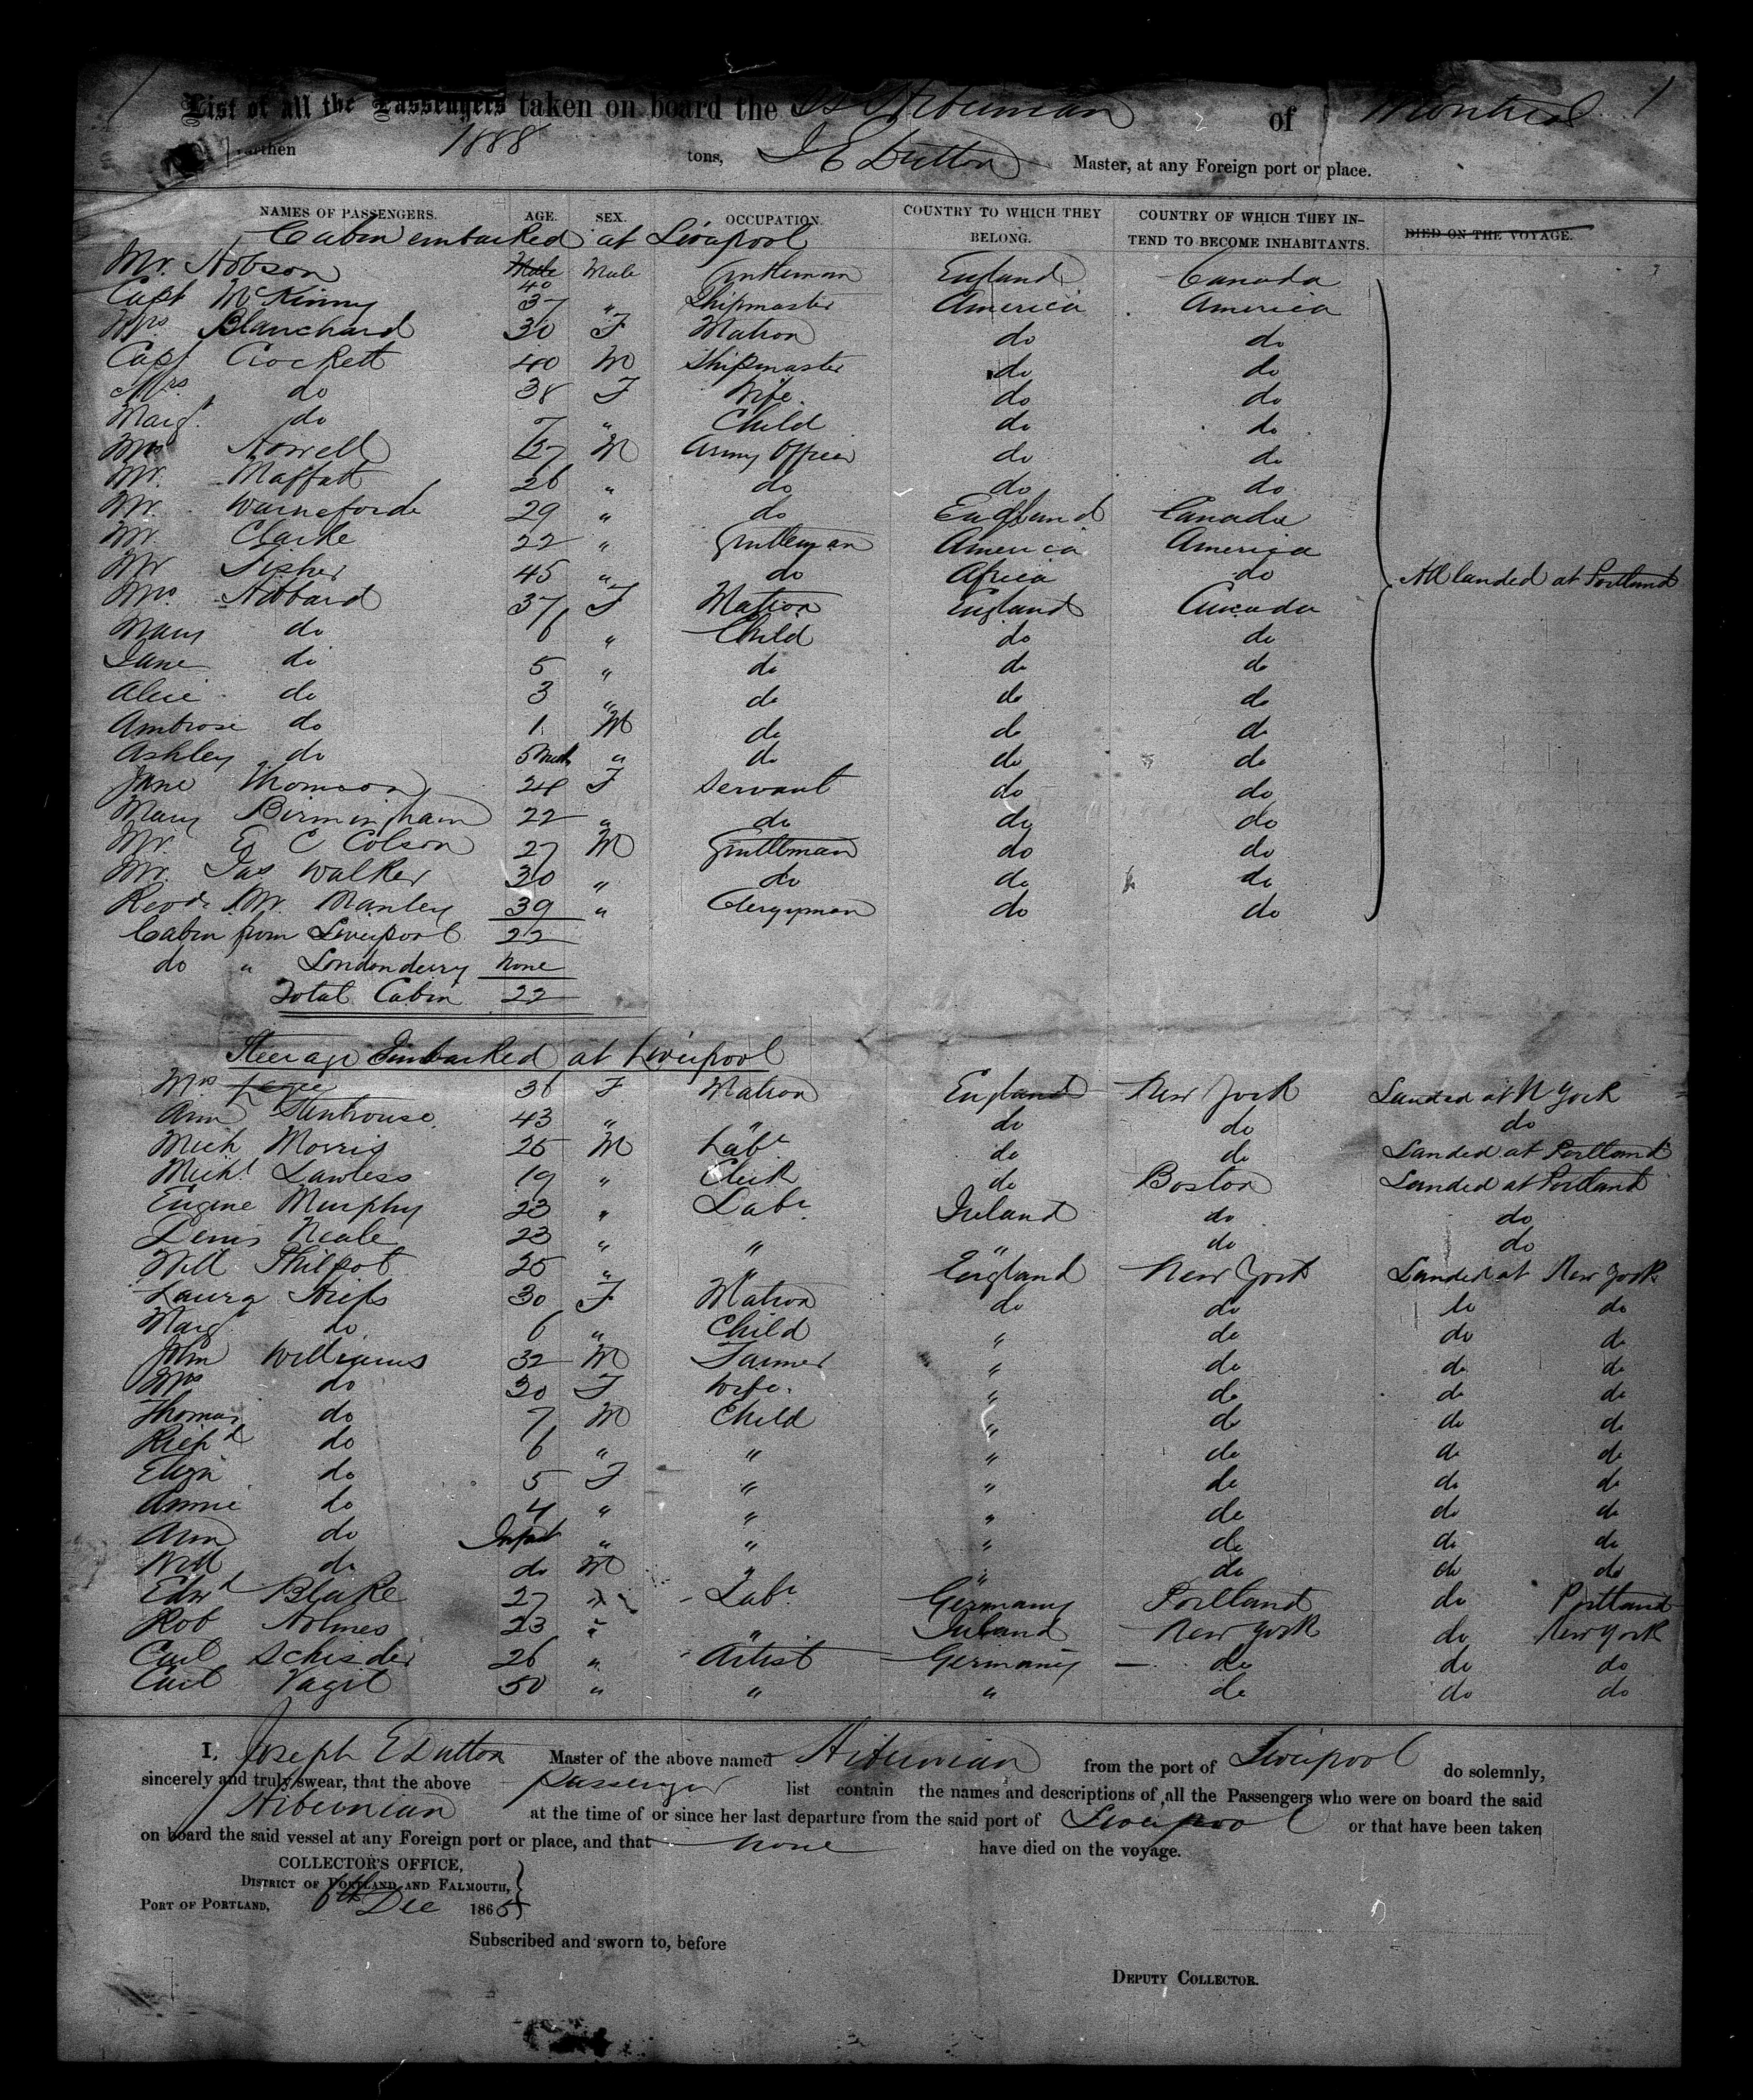 List of all the Passengers taken on board the SS Hibernian of Montreal
Burthen 1888 tons, J E Dutton Master, at any Foreign port or place.
NAMES OF PASSENGERS. AGE. SEX. OCCUPATION. COUNTRY TO WHICH THEY BELONG. COUNTRY OF WHICH THEY INTEND TO BECOME INHABITANTS. DIED ON THE VOYAGE.
Cabin embarked at Liverpool
Mr. Hobson Male 40 Male Gentleman England Canada
Capt McKinny 37 " Shipmaster America America
Mrs Blanchard 30 F Matron do do
Capt Crockett 40 M Shipmaster do do
Mrs do 38 F Wife. do do
Margt do 7 " Child do do
Howell M Army Officer do do
Mr. Maffatt 26 " do do do
Mr. Warneforde 29 " do England Canada
Mr. Clarke 22 " Gentleman America America
Mr Fisher 45 " do Africa do All landed at Portland
Mrs Hibbard 37 F Matron England Canada
Mary do 6 " Child do do
Jane do 5 " do do do
Alice do 3 " do do do
Ambrose do 1 M do do do
Ashley do 5 Mnth " do do do
Jane Thomson 24 F Servant do do
Mary Birmingham 22 " do do do
Mr. E C Colson 27 M Gentleman do do
Mr. Jas Walker 30 " do do do
Revd Mr. Manley 39 " Clergyman do do
Cabin from Liverpool 22
do " Londonderry None
Total Cabin 22
Steerage Embarked at Liverpool
Mrs 36 F Matron England New York Landed at N York
Ann Stenhouse 43 " " do do do
Mich Morris 25 M Labr do do Landed at Portland
Michl Lawless 19 " Clerk do Boston Landed at Portland
Eugene Murphy 23 " Labr Ireland do do
Denis Neale 23 " " " do do
Will Philpot 25 " " England New York Landed at New York
Laura 30 F Matron do do do do
Margt do 6 " Child " do do do
John Williams 32 M Farmer " do do do
Mrs do 30 F Wife. " do do do
Thomas do 7 M Child " do do do
Richd do 6 " " " do do do
Eliza do 5 F " " do do do
Annie do 4 " " " do do do
Ann do Infant " " " do do do
Will do do M " " do do do
Edwd Blake 27 " Labr Germany Portland do Portland
Rob Holmes 23 " " Ireland New York do New York
Carl Schisder 26 " Artist Germany do do do
Carl Vagil 50 " " " do do do
I, Joseph E Dutton Master of the above named Hibernian from the port of Liverpool do solemnly,
sincerely and truly swear, that the above passenger list contain the names and descriptions of all the Passengers who were on board the said
Hibernian at the time of or since her last departure from the said port of Liverpool or that have been taken
on board the said vessel at any Foreign port or place, and that none have died on the voyage.
COLLECTOR'S OFFICE,
DISTRICT OF PORTLAND AND FALMOUTH,
PORT OF PORTLAND, 6th Dec 1865
Subscribed and sworn to, before
DEPUTY COLLECTOR.